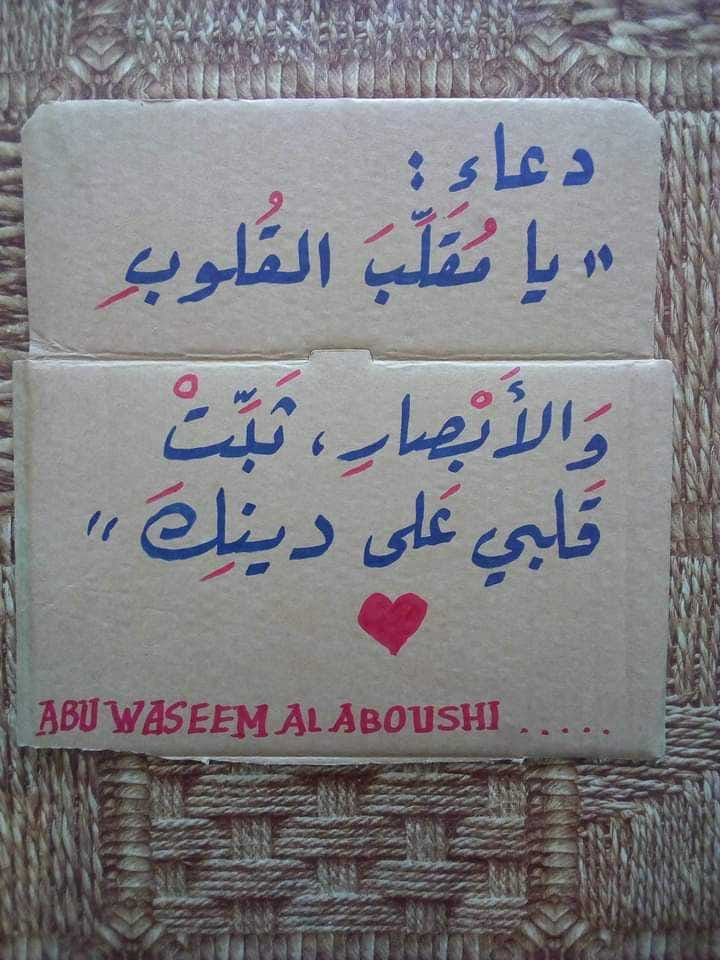 دعاء :
" يا مُقَلَّبَ القُلوبِ
وَالأَبْصارِ، ثَبَّتْ
قَلبي عَلى دينِكَ "
ABU WASEEM AL ABOUSHI .....